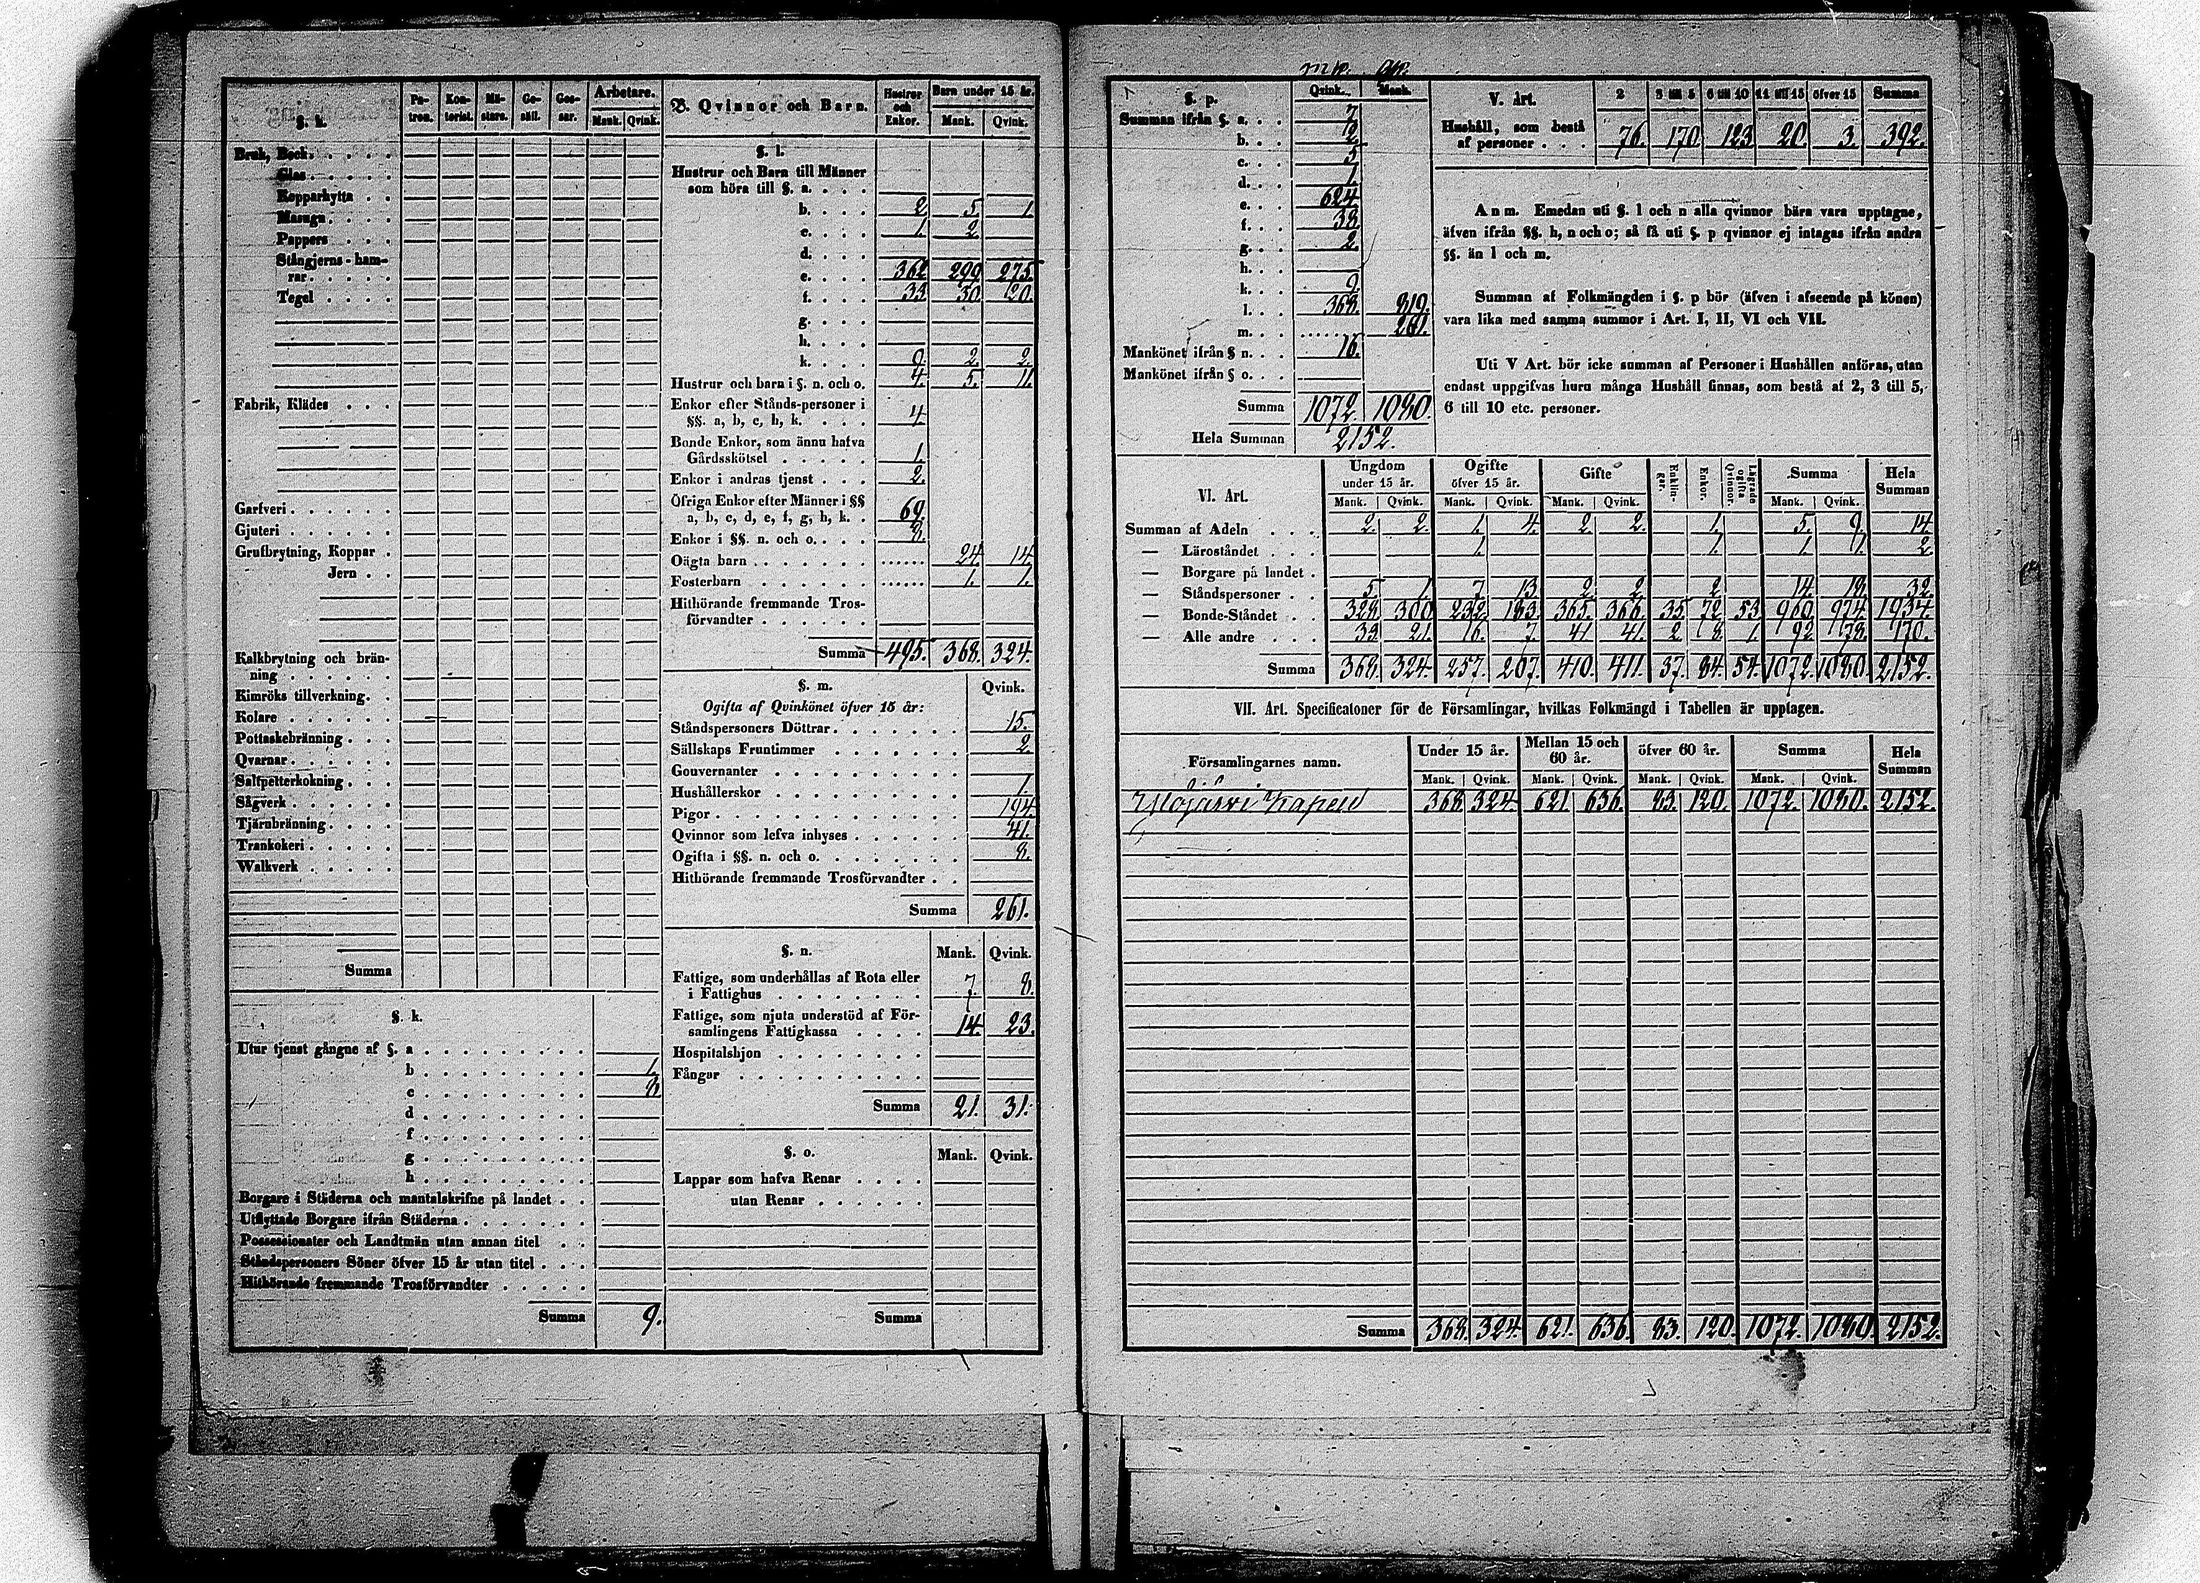 §. h.
Pa-tron. Kon-torist. Mä-stare. Ge-säll. Gos-sar. Arbetare. Mank. Qvink.
Bruk, Beck.
Glas.
Kopparhytta
Masugn.
Pappers
Stångjerns-ham-
rar.
Tegel
Fabrik, Klädes
Garfveri
Gjuteri
Grufbrytning, Koppar
Jern
Kalkbrytning och brän-
ning
Kimröks tillverkning.
Kolare
Pottaskebränning
Qvarnar
Salpetterkokning
Sågverk
Tjärnbränning
Trankokeri
Walkverk
Summa
§. k.
Utur tjenst gångne af §. a
b 1.
c 8
d
f
g
h
Borgare i Städerna och mantalskrifne på landet
Utflyttade Borgare ifrån Städerna
Possessionater och Landtmän utan annan titel
Ståndspersoners Söner öfver 15 år utan titel
Hithörande fremmande Trosförvandter
Summa 9.
B. Qvinnor och Barn. Hustrur och Enkor. Barn under 15 år. Mank. Qvink.
§. l.
Hustrur och Barn till Männer
som höra till §. a.
b. 2 5. 1.
c. 1. 2.
d.
e. 362 299 275.
f. 33 30. 20.
g.
h.
k. 9. 2. 2.
Hustrur och barn i §. n. och o. 4. 5. 11.
Enkor efter Stånds-personer i
§§. a, b, c, h, k. 4.
Bonde Enkor, som ännu hafva
Gårdsskötsel 1.
Enkor i andras tjenst 2.
Öfriga Enkor efter Männer i §§
a, b, c, d, e, f, g, h, k. 69.
Enkor i §§. n. och o. 8.
Oägta barn 24. 14.
Fosterbarn 1. 1.
Hithörande fremmande Tros-
förvandter
Summa 495. 368. 324.
§. m. Qvink.
Ogifta af Qvinkönet öfver 15 år:
Ståndspersoners Döttrar 15.
Sällskaps Fruntimmer 2.
Gouvernanter
Hushållerskor 1.
Pigor 194.
Qvinnor som lefva inhyses 41.
Ogifta i §§. n. och o. 8.
Hithörande fremmande Trosförvandter
Summa 261.
§. n. Mank. Qvink.
Fattige, som underhållas af Rota eller
i Fattighus 7. 8.
Fattige, som njuta understöd af För-
samlingens Fattigkassa 14. 23.
Hospitalshjon
Fångar
Summa 21. 31.
§. o. Mank. Qvink.
Lappar som hafva Renar
utan Renar
Summa
§. p. Qvink. Mank.
Summan ifrån §. a. 7
b. 2
c. 5
d. 1.
e. 624
f. 38.
g. 2.
h.
k. 9.
l. 368. 819.
m. 261.
Mankönet ifrån § n. 16.
Mankönet ifrån § o.
Summa 1072. 1080.
Hela Summan 2152.
V. Art. 2 3 till 5 6 till 10 11 till 15 öfver 15 Summa
Hushåll, som bestå
af personer 76. 170. 123. 20. 3. 392.
Anm. Emedan uti §. l och n alla qvinnor bära vara upptagne,
äfven ifrån §§. h, n och o; så få uti §. p qvinnor ej intagas ifrån andra
§§. än l och m.
Summan af Folkmängden i §. p bör (äfven i afseende på könen)
vara lika med samma summor i Art. I, II, VI och VII.
Uti V Art. bör icke summan af Personer i Hushållen anföras, utan
endast uppgifvas huru många Hushåll finnas, som bestå af 2, 3 till 5,
6 till 10 etc. personer.
VI. Art. Ungdom under 15 år. Ogifte öfver 15 år. Gifte Enklin-gar. Enkor. Lägrade ogifta Qvinnor. Summa Hela Summan
Mank. Qvink. Mank. Qvink. Mank. Qvink. Mank. Qvink.
Summan af Adeln 2. 2. 1. 4. 2. 2. 1. 5. 9. 14.
— Läroståndet 1. 1. 1. 1. 2.
— Borgare på landet
— Ståndspersoner 5. 1. 7. 13. 2. 2. 2. 14. 18. 32.
— Bonde-Ståndet 328. 300. 232. 183. 365. 366. 35. 72. 53. 960. 974. 1934.
— Alle andre 33. 21. 16. 7. 41. 41. 2. 8. 1. 92. 78. 170.
Summa 368. 324. 257. 207. 410. 411. 37. 84. 54. 1072. 1080. 2152.
VII. Art. Specificatoner för de Församlingar, hvilkas Folkmängd i Tabellen är upptagen.
Församlingarnes namn. Under 15 år. Mellan 15 och 60 år. öfver 60 år. Summa Hela Summan
Mank. Qvink. Mank. Qvink. Mank. Qvink. Mank. Qvink.
368. 324. 621. 636. 83. 120. 1072. 1080. 2152.
Summa 368. 324. 621. 636. 83. 120. 1072. 1080. 2152.